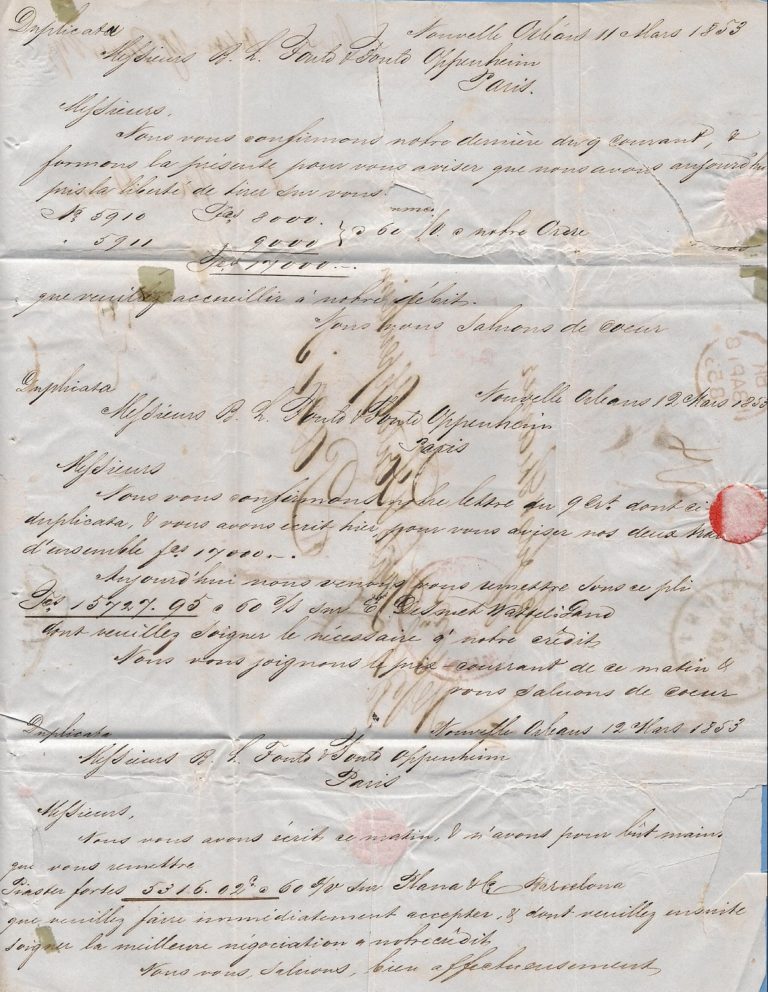 Duplicata
Nouvelle Orléans 11 Mars 1853
Messieurs B. L. Fould & Fould Oppenheim
Paris.
Messieurs,
Nous vous confirmons notre dernière du 9 courant, &
formons la présente pour vous aviser que nous avons aujourd'hui
pris la liberté de tirer sur vous:
No. 5910 Fcs 8000.
" 5911 9000 } a 60 j/v. a notre Ordre
Fcs 17000.-.
que veuillez accueillir à notre débit.
Nous vous saluons de coeur
Duplicata
Nouvelle Orleans 12 Mars 1853
Messieurs B. L. Fould & Fould Oppenheim
Paris
Messieurs
Nous vous confirmons notre lettre du 9 crt. dont ci
duplicata, & vous avons écrit hier, pour vous aviser nos deux
d'ensemble fcs 17000.-.
Aujourd'hui nous venons vous remettre sous ce pli
Fcs 15727.95 a 60 j/s sur
dont veuillez soigner le nécessaire a' notre crédit
Nous vous joignons le prix-courrant de ce matin &
vous saluons de coeur
Duplicata
Nouvelle Orléans 12 Mars 1853
Messieurs B. L. Fould & Fould Oppenheim
Paris
Messieurs,
Nous vous avons écrit ce matin, & n'avons pour bût
que vous remettre
Piaster fortes 5316.02c a 60 j/v sur Plana & Co Barcelona
que veuillez faire immédiatement accepter, & dont veuillez ensuite
soigner la meilleure négociation a notre crédit
Nous vous saluons, bien affectueusement